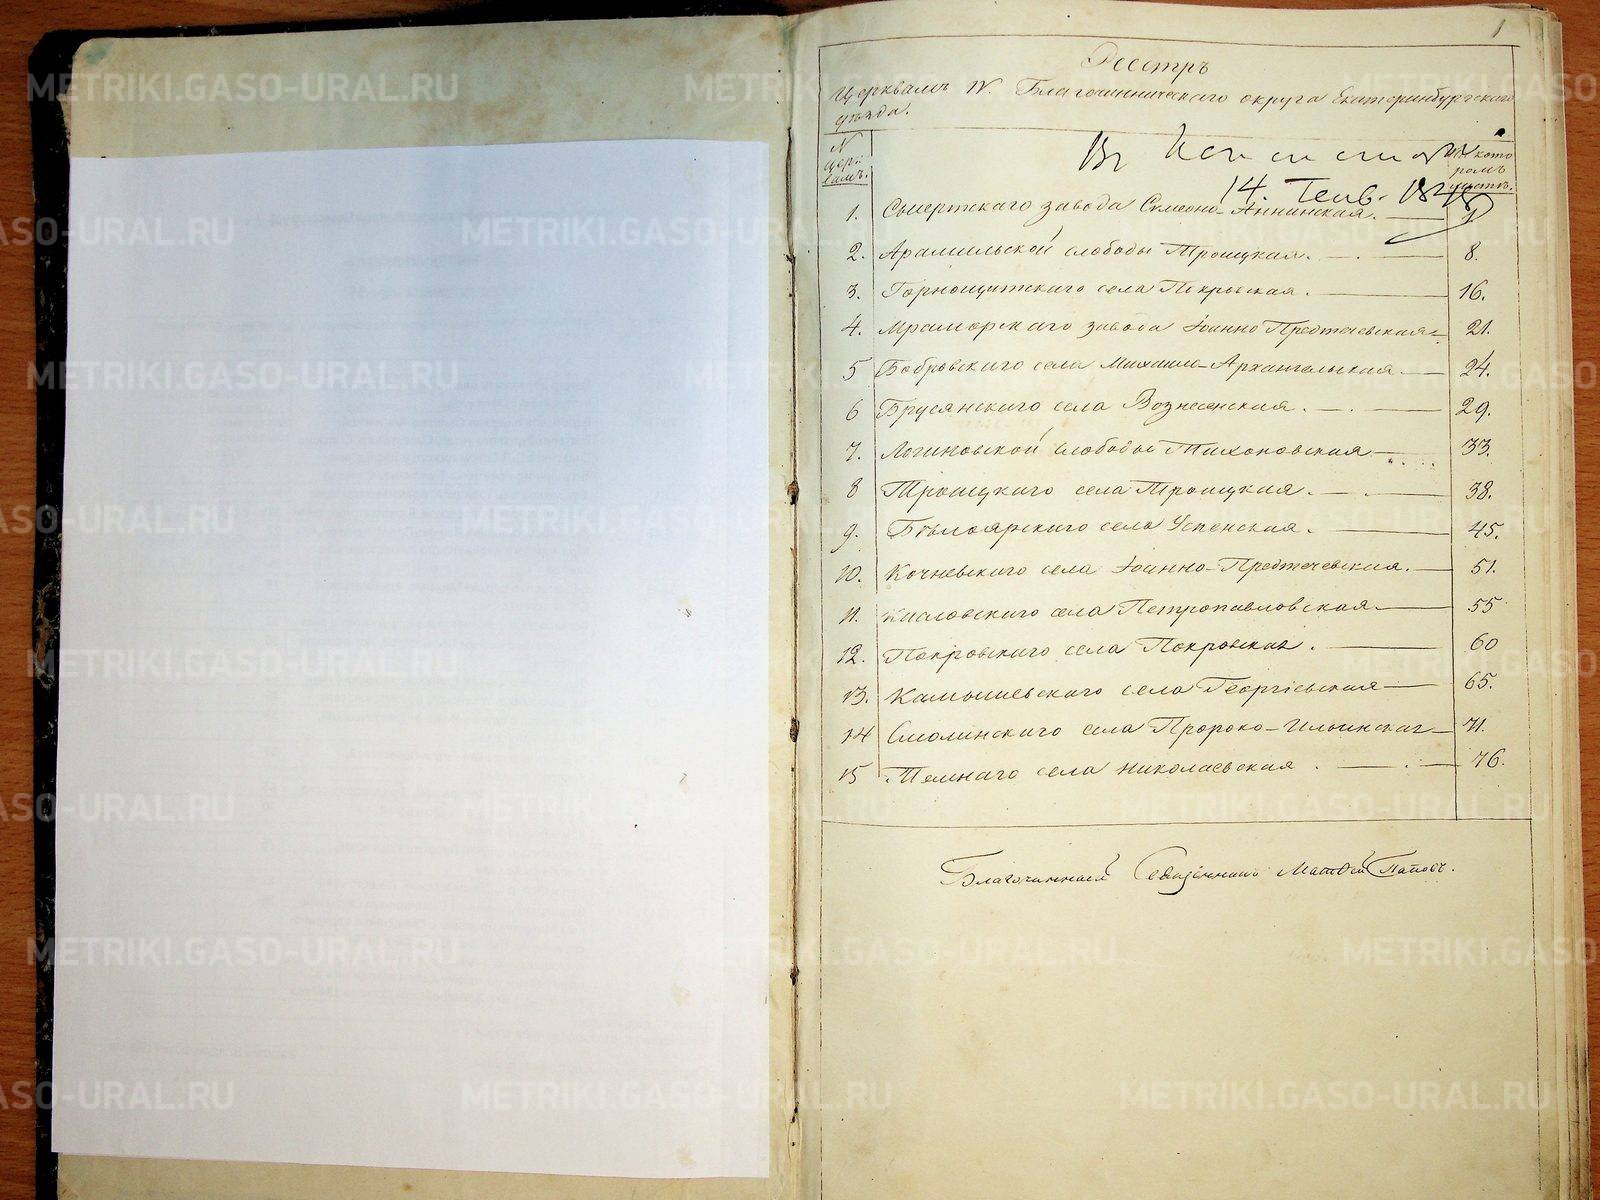 1
Реестръ
Церквамъ IV. Благочинническаго округа Екатеринбургскаго
уѣзда.
N
церк
вамъ.
Въ
на кото
ромъ
листѣ.
14. Генв. 18
1. Сысертскаго завода Симеоно-Аннинская. 1
2. Арамильской слободы Троицкая. 8.
3. Горнощитскаго села Покровская. 16.
4. Мраморскаго завода Іоанно Предтечевская 21.
5 Бобровскаго села Михаило-Архангельская 24.
6 Брусянскаго села Вознесенская. 29.
7. Логиновской слободы Тихоновская 33.
8 Троицкаго села Троицкая. 38.
9. Бѣлоярскаго села Успенская. 45.
10. Кочневскаго села Іоанно-Предтечевская. 51.
11. Кисловскаго села Петропавловская 55
12. Покровскаго села Покровская. 60
13. Камышевскаго села Георгіевская 65.
14 Смолинскаго села Пророко-Ильинская 71.
15 Темнаго села Николаевская 76.
Благочинный Священникъ Матвѣй Поповъ.
METRIKI.GASO-URAL.RU